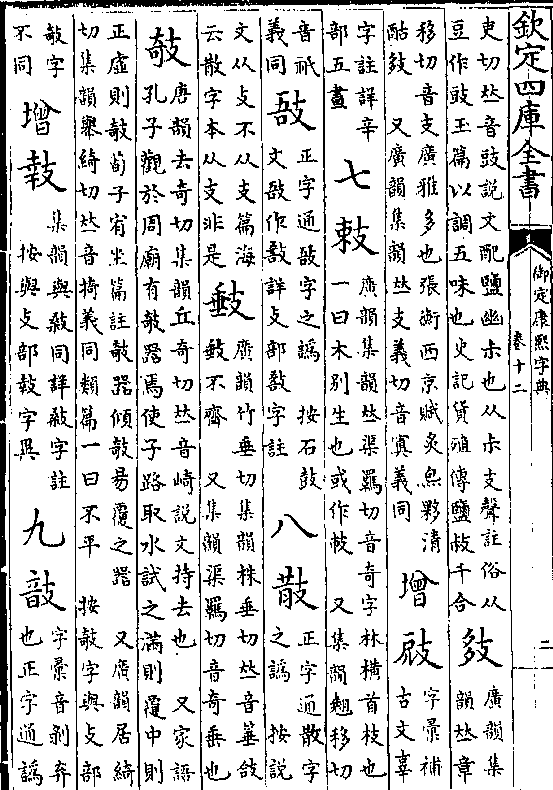 欽定四庫全書
御定康熙字典
卷十二
二
吏切𠀤音豉說文配鹽幽尗也从尗支聲註俗从
豆作豉玉篇以調五味也史記貨殖傳鹽䜴千合
㩼
廣韻集
韻𠀤章
移切音支廣雅多也張衡西京賦炙炰夥清
酤㩼 又廣韻集韻𠀤支義切音寘義同
增
字彙補
古文辜
字註詳辛
部五畫
七
廣韻集韻𠀤渠羈切音奇字林橫首枝也
一曰木別生也或作 又集韻翹移切
音祇
義同
正字通敔字之譌 按石鼓
文敔作 詳攴部敔字註
八
正字通散字
之譌 按說
文从攴不从支篇海
云散字本从支非是
廣韻竹垂切集韻株垂切𠀤音箠
不齊 又集韻渠羈切音奇垂也
攲
唐韻去奇切集韻丘奇切𠀤音崎說文持去也 又家語
孔子觀於周廟有攲器焉使子路取水試之滿則覆中則
正虛則攲荀子宥坐篇註攲器傾攲易覆之器 又廣韻居綺
切集韻舉綺切𠀤音掎義同類篇一曰不平 按攲字與攴部
敧字
不同
增
集韻與 同詳 字註
按與攴部 字異
九
字彙音剝弃
也正字通譌